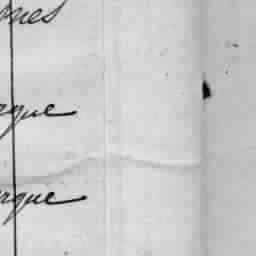 ones
rque
rque